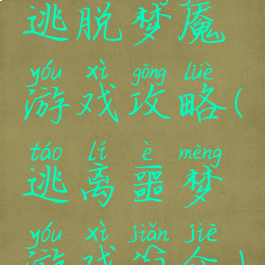 逃脱梦魇
yóu xì gōng lüè
游戏攻略(
táo lí è mèng
逃离噩梦
yóu xì jiǎn jiè
游戏